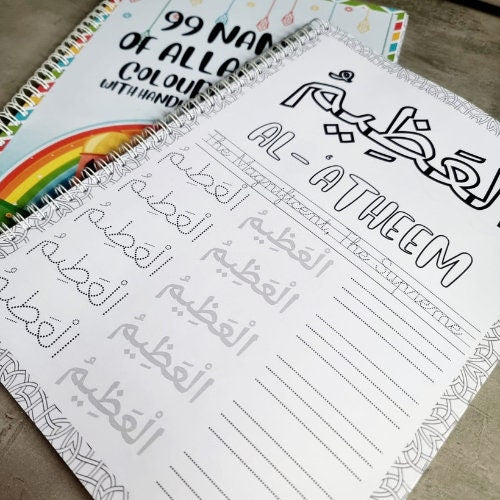 99 NAM
OF ALLA
COLOU
WITH HAND
الْعَظِيمُ
AL-'ATHEEM
The Magnificent, The Supreme
الْعَظِيمُ
الْعَظِيمُ
الْعَظِيمُ
الْعَظِيمُ
الْعَظِيمُ
الْعَظِيمُ
الْعَظِيمُ
الْعَظِيمُ
الْعَظِيمُ